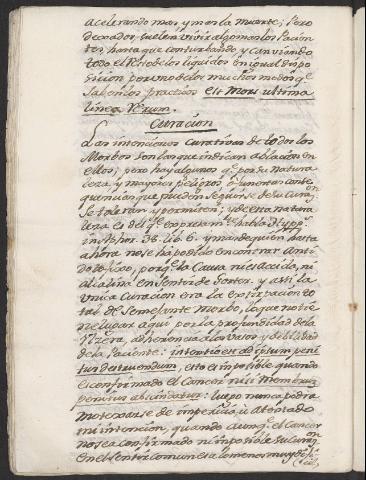 acelerando mas y mas la muerte; Pero
de odor, suelen vivir algo mas los Pacien
tes, hasta que conturbando y canviando
todo el Resto de los liquidos en igual dispo
sicion por uno de los muchos modos qe
saben los practicos est Mors ultima
linea Rerum.
Curacion
Las intenciones Curativas de todos los
Morbos son las que indican ablacion en
ellos; pero hay algunos qe por su natura
leza, y mayores peligros u funestas conse
quencias que pueden seguirse de su Curon
se toleran y permiten; y de esta natura
leza es del qe expresamte habla Hyppes
in Aphor. 38. lib. 6. y mande quien hasta
ahora no se ha podido encontrar Anti
doto fixo, porqe la Causa ni es acido, ni
alialina en sentir de Gorter. y assi la
unica Curacion era la extirpacion to
tal de semejante Morbo, lo que no tie
ne lugar aqui por la profundidad de la
Ulcera, adherencia a los vasos y debilidad
de la Paciente: intentio est ad ipsum peni
tus destruendum, esto es imposible quando
es conformado el Cancer nisi Membrum
penitus abscindatur: luego nunca podra
motexarse de imperito u atentado
mi intencion, quando aunqe el Cancer
no sea confirmado ni imposible su Curon
en el sentir comun es a lo menos muy difi
cil